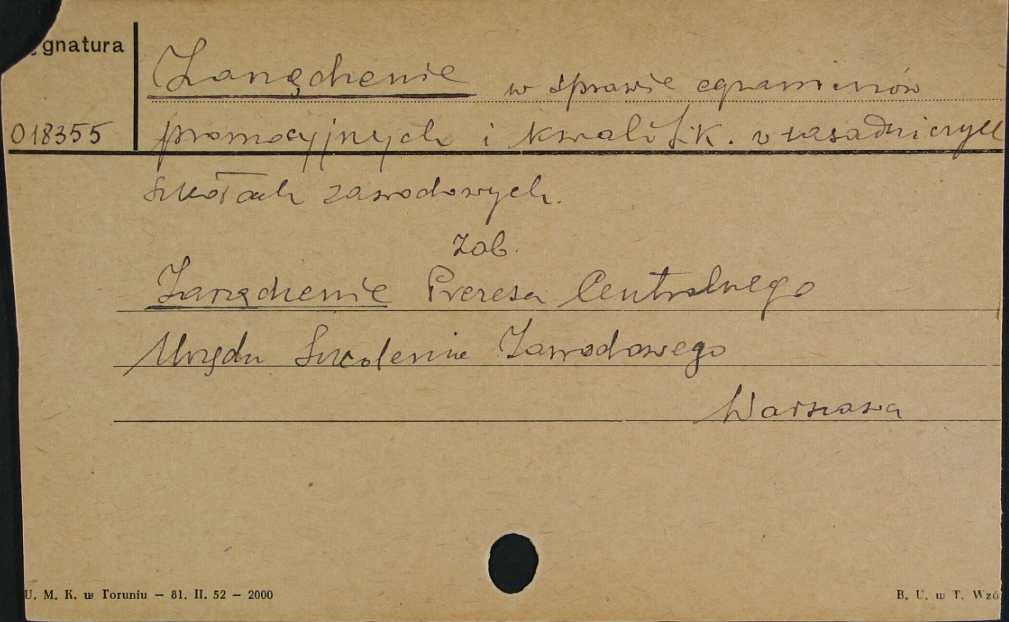 ygnatura
Zarządzenie w sprawie egzaminów
018355 promocyjnych i kwalifik. w zasadniczych
szkołach zawodowych.
zob.
Zarządzenie Prezesa Centralnego
Urzędu Szkolenia Zawodowego
Warszawa
U. M. K. w Toruniu — 81. II. 52 — 2000
B. U. w T. Wzó